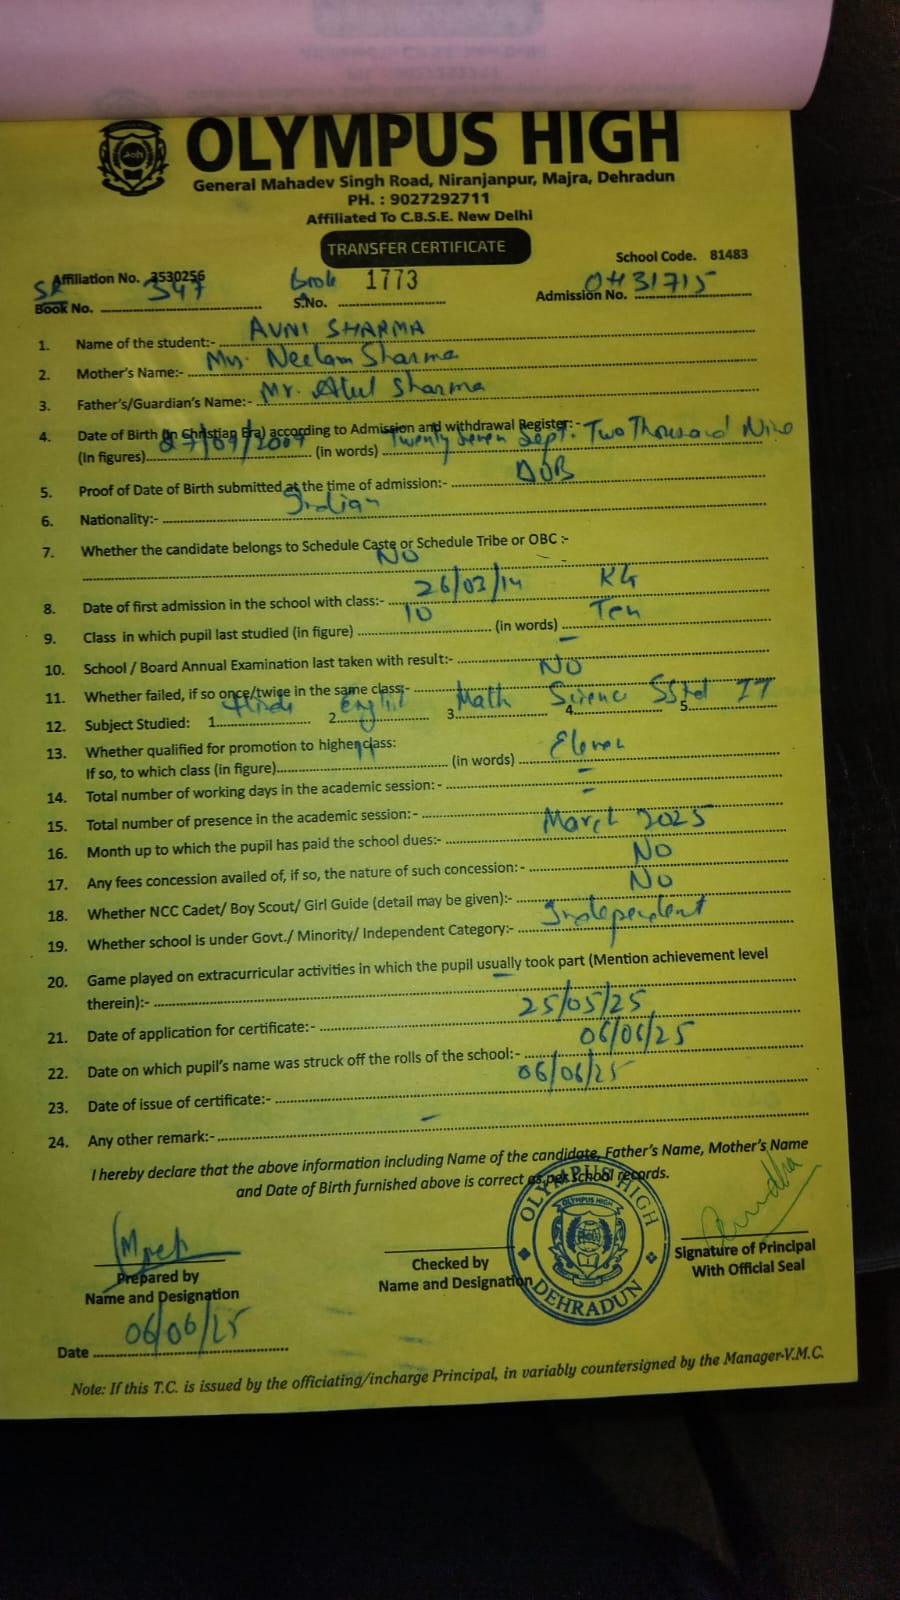 OLYMPUS HIGH
General Mahadev Singh Road, Niranjanpur, Majra, Dehradun
PH. : 9027292711
Affiliated To C.B.S.E. New Delhi
TRANSFER CERTIFICATE
School Code. 81483
Affiliation No. 3530256
SR Book No. 347 Book S.No. 1773 Admission No. 0431715
1. Name of the student:- AVNI SHARMA
2. Mother's Name:- Mrs. Neelam Sharma
3. Father's/Guardian's Name:- Mr. Atul Sharma
4. Date of Birth (In Christian Era) according to Admission and withdrawal Register:-
(In figures) 27/09/2009 (in words) Twenty Seven Sept. Two Thousand Nine
5. Proof of Date of Birth submitted at the time of admission:- DOB
6. Nationality:- Indian
7. Whether the candidate belongs to Schedule Caste or Schedule Tribe or OBC :-
No
8. Date of first admission in the school with class:- 26/03/14 KG
9. Class in which pupil last studied (in figure) 10 (in words) Ten
10. School / Board Annual Examination last taken with result:- -
11. Whether failed, if so once/twice in the same class:- No
12. Subject Studied: 1. Hindi 2. English 3. Math 4. Science 5. SSt IT
13. Whether qualified for promotion to higher class:
If so, to which class (in figure) 11 (in words) Eleven
14. Total number of working days in the academic session:- -
15. Total number of presence in the academic session:- -
16. Month up to which the pupil has paid the school dues:- March 2025
17. Any fees concession availed of, if so, the nature of such concession:- No
18. Whether NCC Cadet/ Boy Scout/ Girl Guide (detail may be given):- No
19. Whether school is under Govt./ Minority/ Independent Category:- Independent
20. Game played on extracurricular activities in which the pupil usually took part (Mention achievement level
therein):- -
21. Date of application for certificate:- 25/05/25
22. Date on which pupil's name was struck off the rolls of the school:- 06/06/25
23. Date of issue of certificate:- 06/06/25
24. Any other remark:- -
I hereby declare that the above information including Name of the candidate, Father's Name, Mother's Name
and Date of Birth furnished above is correct as per school records.
OLYMPUS HIGH
OLYMPUS HIGH
DEHRADUN
Prepared by
Name and Designation
Checked by
Name and Designation
Signature of Principal
With Official Seal
Date 06/06/25
Note: If this T.C. is issued by the officiating/incharge Principal, in variably countersigned by the Manager-V.M.C.